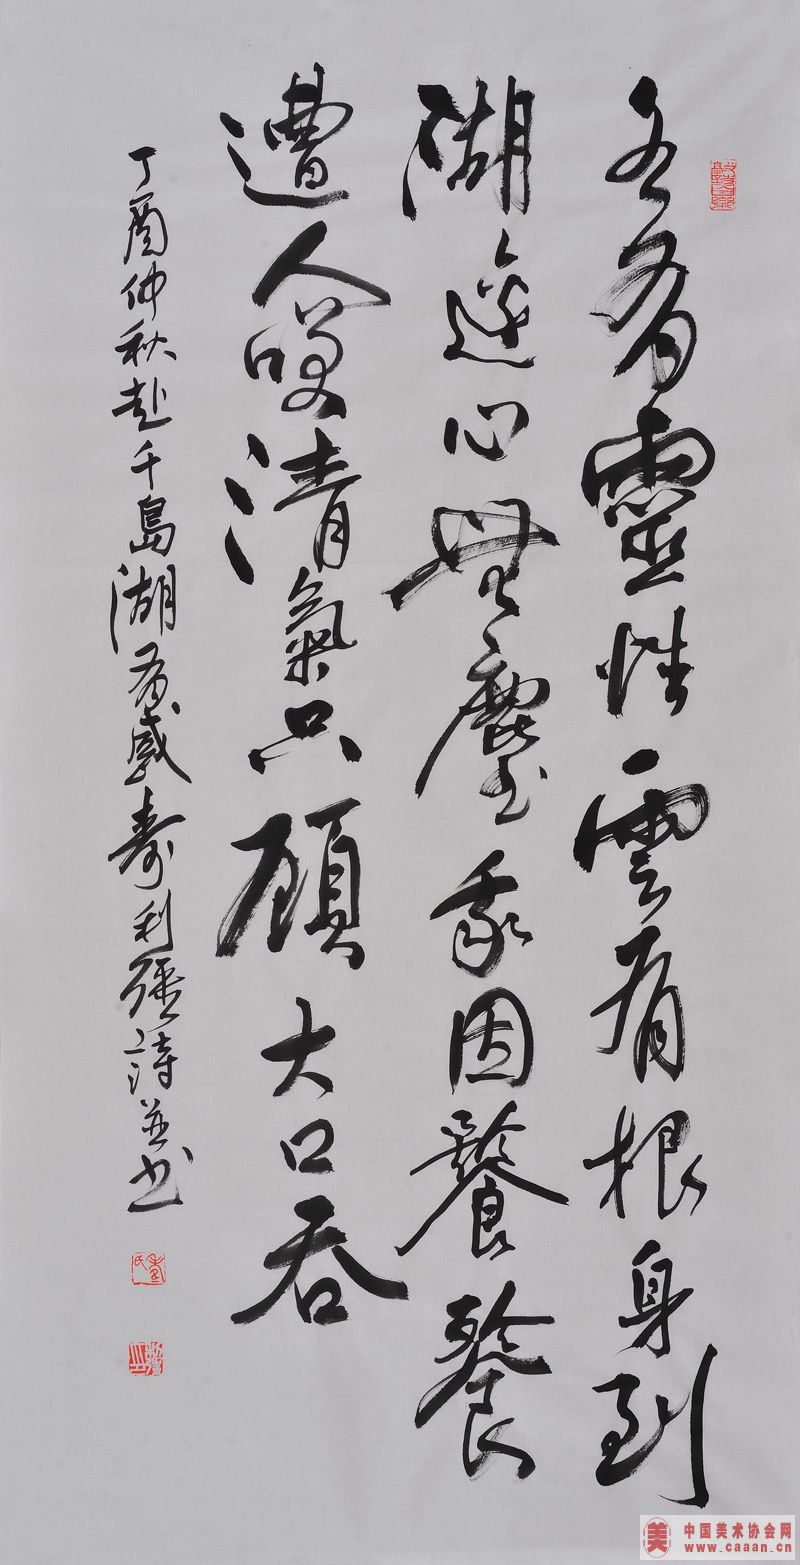 有靈性雲有根身到
湖邊心無塵我因饕餮
遭人清氣只顧大口吞
丁酉仲秋赴千島湖有感壽利強詩並书
中国美术协会网
www.caaan.cn